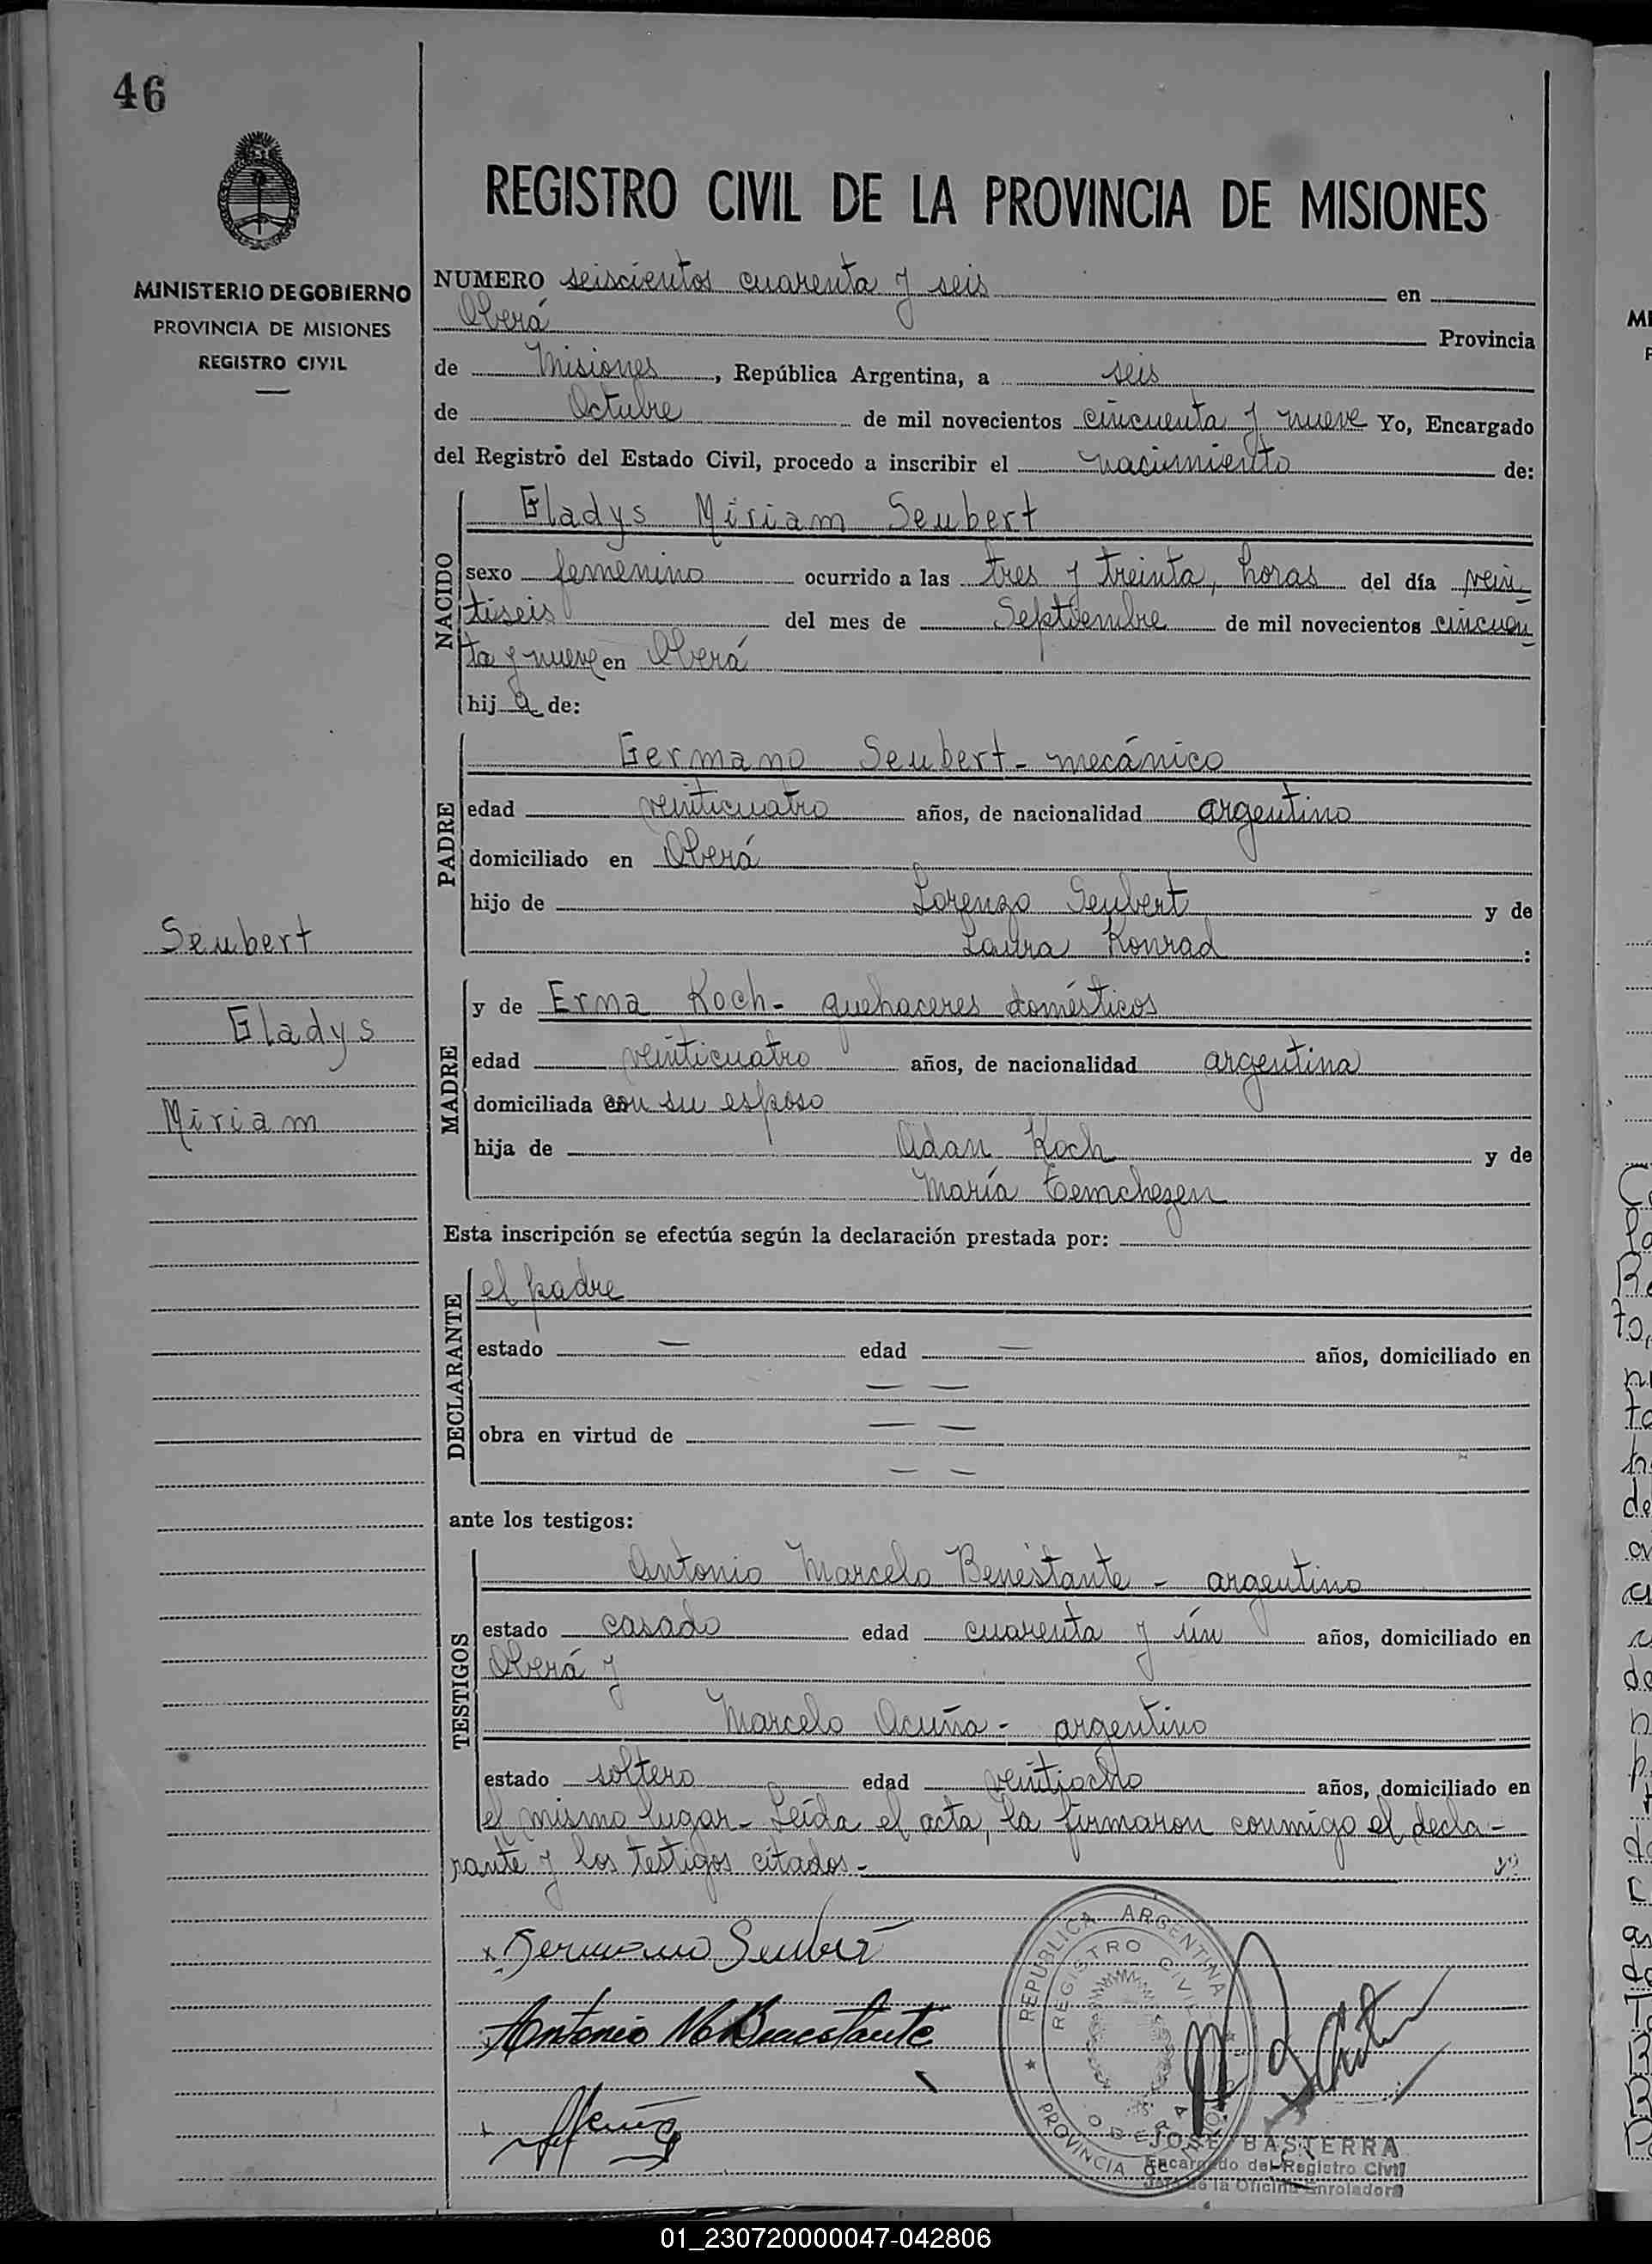 46
MINISTERIO DE GOBIERNO
PROVINCIA DE MISIONES
REGISTRO CIVIL
REGISTRO CIVIL DE LA PROVINCIA DE MISIONES
NUMERO seiscientos cuarenta y seis en
Oberá Provincia
de Misiones, República Argentina, a seis
de Octubre de mil novecientos cincuenta y nueve Yo, Encargado
del Registro del Estado Civil, procedo a inscribir el nacimiento de:
NACIDO
Gladys Miriam Seubert
sexo femenino ocurrido a las tres y treinta, horas del día vein
tiseis del mes de Septiembre de mil novecientos cincuen
ta y nueve en Oberá
hij a de:
PADRE
Germano Seubert - mecánico
edad veinticuatro años, de nacionalidad argentino
domiciliado en Oberá
hijo de Lorenzo Seubert y de
Laura Konrad :
Seubert
Gladys
Miriam
MADRE
y de Erma Koch - quehaceres domésticos
edad veinticuatro años, de nacionalidad argentina
domiciliada con su esposo
hija de Adan Koch y de
María
Esta inscripción se efectúa según la declaración prestada por:
DECLARANTE
el padre
estado — edad — años, domiciliado en
— —
obra en virtud de — —
— —
ante los testigos:
TESTIGOS
Antonio Marcelo Benestante - argentino
estado casado edad cuarenta y ún años, domiciliado en
Oberá y
Marcelo Acuña - argentino
estado soltero edad veintiocho años, domiciliado en
el mismo lugar - Leída el acta, la firmaron conmigo el decla-
rante y los testigos citados.-
Germano Seubert
Antonio M Benestante
REPUBLICA ARGENTINA
REGISTRO CIVIL
OBERA
PROVINCIA DE
JOSE BASTERRA
Encargado del Registro Civil
Jefe de la Oficina Enroladora
01_230720000047-042806